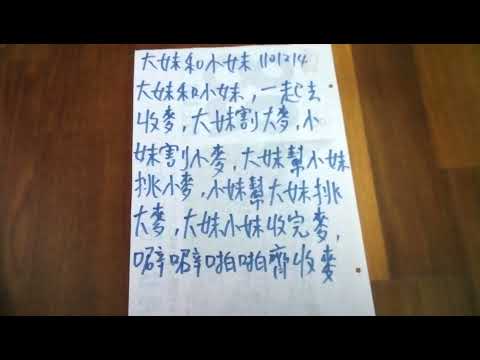 大妹和小妹 1101214
大妹和小妹,一起去
收麥,大妹割大麥,小
妹割小麥,大妹幫小妹
挑小麥,小妹幫大妹挑
大麥,大妹小妹收完麥,
噼噼啪啪齊收麥